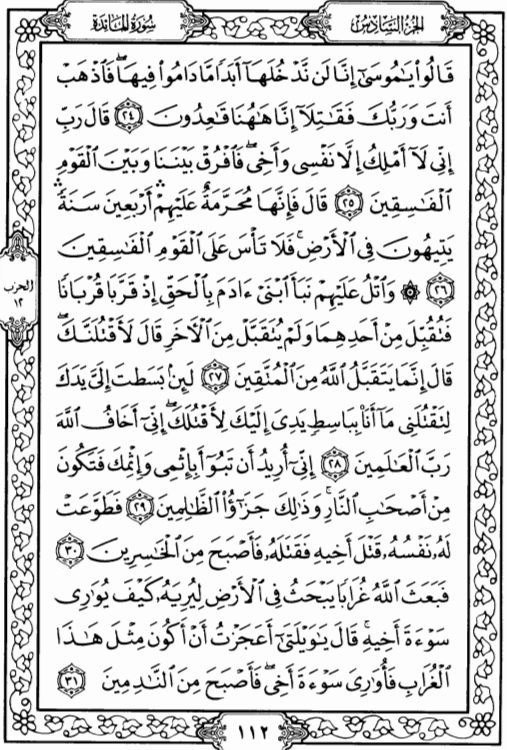 الجزء السادس
سورة المائدة
قَالُوا۟ يَٰمُوسَىٰٓ إِنَّا لَن نَّدْخُلَهَآ أَبَدًا مَّا دَامُوا۟ فِيهَا ۖ فَٱذْهَبْ
أَنتَ وَرَبُّكَ فَقَٰتِلَآ إِنَّا هَٰهُنَا قَٰعِدُونَ ٢٤ قَالَ رَبِّ
إِنِّى لَآ أَمْلِكُ إِلَّا نَفْسِى وَأَخِى ۖ فَٱفْرُقْ بَيْنَنَا وَبَيْنَ ٱلْقَوْمِ
ٱلْفَٰسِقِينَ ٢٥ قَالَ فَإِنَّهَا مُحَرَّمَةٌ عَلَيْهِمْ ۛ أَرْبَعِينَ سَنَةً ۛ
يَتِيهُونَ فِى ٱلْأَرْضِ ۚ فَلَا تَأْسَ عَلَى ٱلْقَوْمِ ٱلْفَٰسِقِينَ
٢٦ ۞ وَٱتْلُ عَلَيْهِمْ نَبَأَ ٱبْنَىْ ءَادَمَ بِٱلْحَقِّ إِذْ قَرَّبَا قُرْبَانًا
الحزب
١٢
فَتُقُبِّلَ مِنْ أَحَدِهِمَا وَلَمْ يُتَقَبَّلْ مِنَ ٱلْءَاخَرِ قَالَ لَأَقْتُلَنَّكَ ۖ
قَالَ إِنَّمَا يَتَقَبَّلُ ٱللَّهُ مِنَ ٱلْمُتَّقِينَ ٢٧ لَئِنۢ بَسَطتَ إِلَىَّ يَدَكَ
لِتَقْتُلَنِى مَآ أَنَا۠ بِبَاسِطٍ يَدِىَ إِلَيْكَ لِأَقْتُلَكَ ۖ إِنِّىٓ أَخَافُ ٱللَّهَ
رَبَّ ٱلْعَٰلَمِينَ ٢٨ إِنِّىٓ أُرِيدُ أَن تَبُوٓأَ بِإِثْمِى وَإِثْمِكَ فَتَكُونَ
مِنْ أَصْحَٰبِ ٱلنَّارِ ۚ وَذَٰلِكَ جَزَٰٓؤُا۟ ٱلظَّٰلِمِينَ ٢٩ فَطَوَّعَتْ
لَهُۥ نَفْسُهُۥ قَتْلَ أَخِيهِ فَقَتَلَهُۥ فَأَصْبَحَ مِنَ ٱلْخَٰسِرِينَ ٣٠
فَبَعَثَ ٱللَّهُ غُرَابًا يَبْحَثُ فِى ٱلْأَرْضِ لِيُرِيَهُۥ كَيْفَ يُوَٰرِى
سَوْءَةَ أَخِيهِ ۚ قَالَ يَٰوَيْلَتَىٰٓ أَعَجَزْتُ أَنْ أَكُونَ مِثْلَ هَٰذَا
ٱلْغُرَابِ فَأُوَٰرِىَ سَوْءَةَ أَخِى ۖ فَأَصْبَحَ مِنَ ٱلنَّٰدِمِينَ ٣١
١١٢